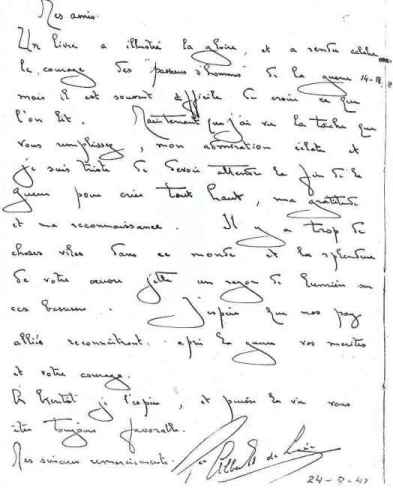 Mes amis
Un livre a illustré la gloire, et a rendu célèbre
le courage des "passeurs d'hommes" de la guerre 14-18,
mais il est souvent difficile de croire ce que
l'on lit. Maintenant que j'ai vu la tâche que
vous remplissez, mon admiration éclate et
je suis triste de devoir attendre la fin de la
guerre pour crier tout haut, ma gratitude
et ma reconnaissance. Il y a trop de
choses viles dans ce monde et la splendeur
de votre oeuvre jette un rayon de lumière sur
ces bassesses. J'espère que nos pays
alliés reconnaîtront après la guerre vos mérites
et votre courage.
A bientôt je l'espère, et puisse la vie vous
être toujours favorable.
Mes sincères remerciements.